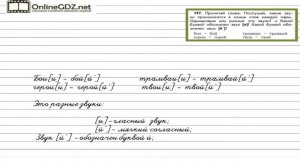 OnlineGDZ.net
197. Прочитай слова. Послушай, какие звуки произносятся в конце слов каждой пары. Одинаковые или разные это звуки? Какой буквой обозначен звук [и]? Какой буквой обозначен звук [й']?
Бои – бой трамваи – трамвай
герои – герой твои – твой
Бои[и] – бой[й'] трамваи[и] – трамвай[й']
герои[и] – герой[й'] твои[и] – твой[й']
Это разные звуки:
[и]-гласный звук;
[й'] - мягкий согласный;
Звук [й'] - обозначен буквой й;